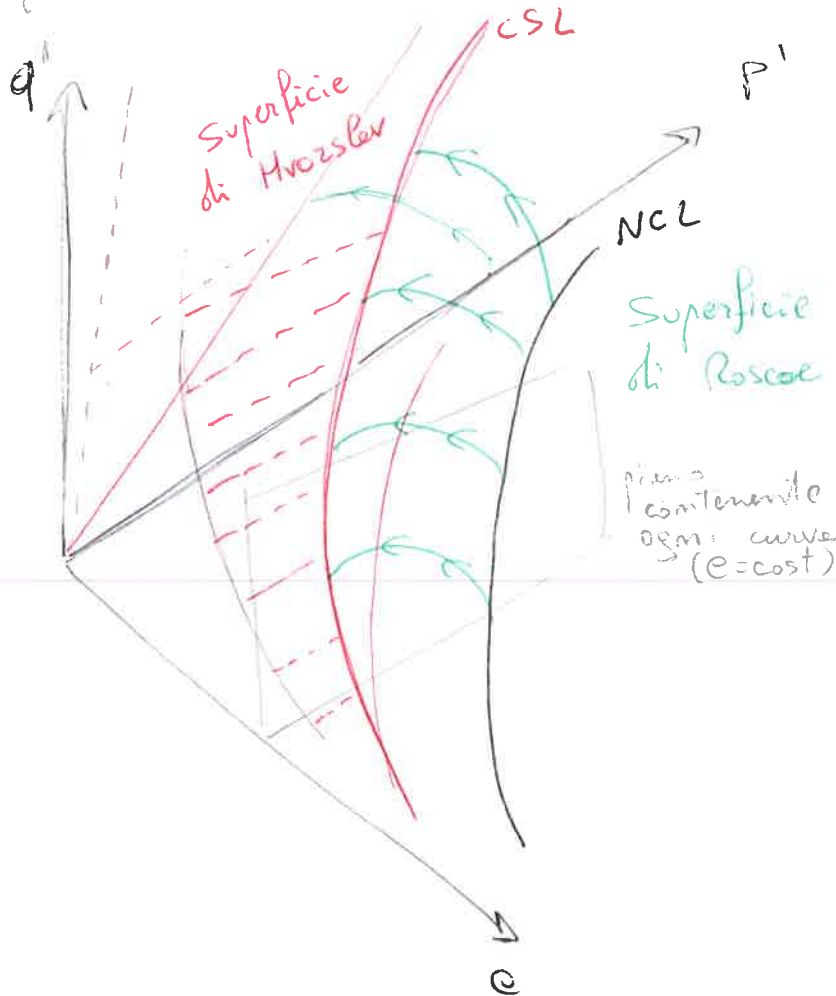 CSL
q'
p'
Superficie
di Hvorslev
NCL
Superficie
di Roscoe
piano
contenente
ogni curva
(e=cost)
e